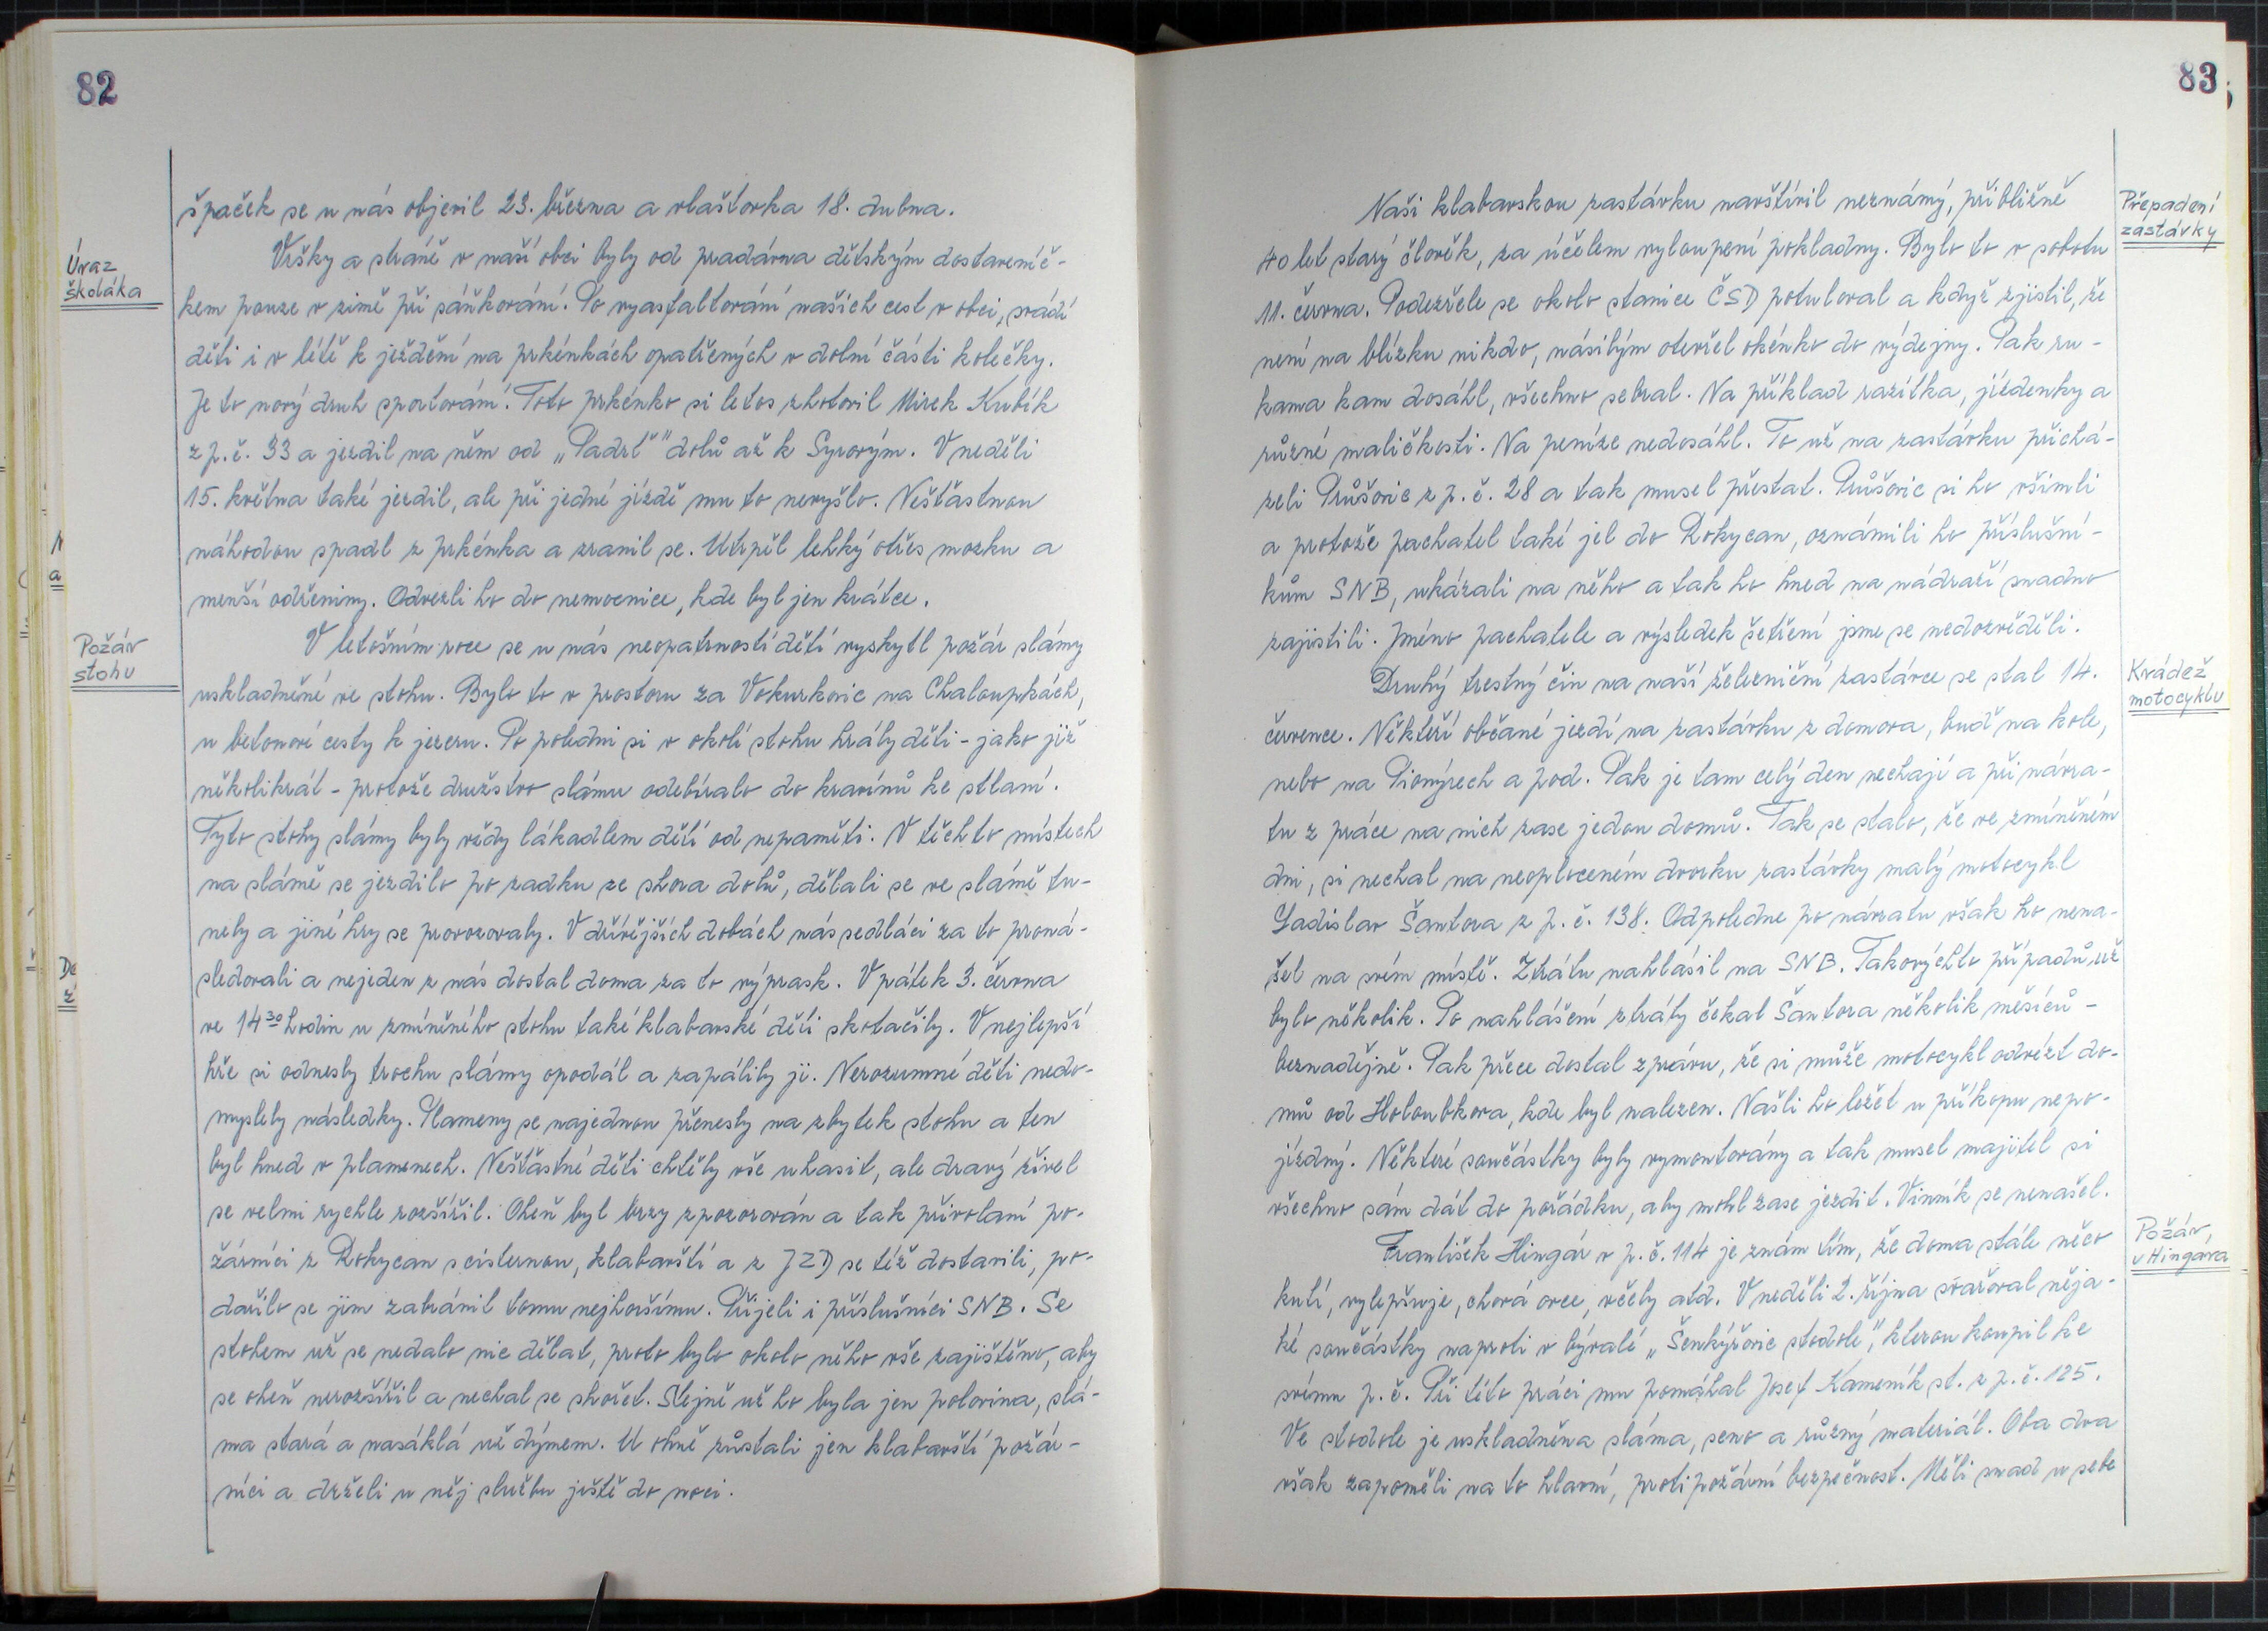 82
špaček se u nás objevil 23. března a vlaštovka 18. dubna.
Úraz
školáka
Vršky a stráně v naší obci byly od pradávna dětským dostaveníč-
kem pouze v zimě při sáňkování. Po vyasfaltování našich cest v obci, svádí
děti i v létě k ježdění na prkénkách opatřených v dolní části kolečky.
Je to nový druh sportování. Toto prkénko si letos zhotovil Mirek Kubík
z p.č. 33 a jezdil na něm od „Padrť" dolů až k Syrovým. V neděli
15. května také jezdil, ale při jedné jízdě mu to nevyšlo. Nešťastnou
náhodou spadl z prkénka a zranil se. Utrpěl lehký otřes mozku a
menší odřeniny. Odvezli ho do nemocnice, kde byl jen krátce.
Požár
stohu
V letošním roce se u nás neopatrností dětí vyskytl požár slámy
uskladněné ve stohu. Bylo to v prostoru za Vokurkovic na Chaloupkách,
u betonové cesty k jezeru. Po poledni si v okolí stohu hrály děti - jako již
několikrát - protože družstvo slámu odebíralo do kravínů ke stlaní.
Tyto stohy slámy byly vždy lákadlem dětí od nepaměti. V těchto místech
na slámě se jezdilo po zadku ze shora dolů, dělali se ve slámě tu-
nely a jiné hry se provozovaly. V dřívějších dobách nás sedláci za to proná-
sledovali a nejeden z nás dostal doma za to výprask. V pátek 3. června
ve 14³⁰ hodin u zmíněného stohu také klabavské děti skotačily. V nejlepší
hře si odnesly trochu slámy opodál a zapálily ji. Nerozumné děti nedo-
myslely následky. Plameny se najednou přenesly na zbytek stohu a ten
byl hned v plamenech. Nešťastné děti chtěly vše uhasit, ale dravý živel
se velmi rychle rozšířil. Oheň byl brzy zpozorován a tak přivolaní po-
žárníci z Rokycan s cisternou, klabavští a z JZD se též dostavili, po-
dařilo se jim zabránit tomu nejhoršímu. Přijeli i příslušníci SNB. Se
stohem už se nedalo nic dělat, proto bylo okolo něho vše zajištěno, aby
se oheň nerozšířil a nechal se shořet. Stejně už ho byla jen polovina, slá-
ma stará a nasáklá už dýmem. U ohně zůstali jen klabavští požár-
níci a drželi u něj službu ještě do noci.
83
Přepadení
zastávky
Naši klabavskou zastávku navštívil neznámý, přibližně
40 let starý člověk, za účelem vyloupení pokladny. Bylo to v sobotu
11. června. Podezřele se okolo stanice ČSD potuloval a když zjistil, že
není na blízku nikdo, násilým otevřel okénko do výdejny. Pak ru-
kama kam dosáhl, všechno sebral. Na příklad razítka, jízdenky a
různé maličkosti. Na peníze nedosáhl. To už na zastávku přichá-
zeli Průšovic z p.č. 28 a tak musel přestat. Průšovic si ho všimli
a protože pachatel také jel do Rokycan, oznámili ho příslušní-
kům SNB, ukázali na něho a tak ho hned na nádraží snadno
zajistili. Jméno pachatele a výsledek šetření jsme se nedozvěděli.
Krádež
motocyklu
Druhý trestný čin na naší železniční zastávce se stal 14.
července. Někteří občané jezdí na zastávku z domova, buď na kole,
nebo na Pionýrech a pod. Pak je tam celý den nechají a při návra-
tu z práce na nich zase jedou domů. Tak se stalo, že ve zmíněném
dni, si nechal na neoploceném dvorku zastávky malý motocykl
Ladislav Šantora z p.č. 138. Odpoledne po návratu však ho nena-
šel na svém místě. Ztrátu nahlásil na SNB. Takovýchto případů už
bylo několik. Po nahlášení ztráty čekal Šantora několik měsíců -
beznadějně. Pak přece dostal zprávu, že si může motocykl odvézt do-
mů od Holoubkova, kde byl nalezen. Našli ho ležet u příkopu nepo-
jízdný. Některé součástky byly vymontovány a tak musel majitel si
všechno sám dát do pořádku, aby mohl zase jezdit. Vinník se nenašel.
Požár,
u Hingara
František Hingár v p.č. 114 je znám tím, že doma stále něco
kutí, vylepšuje, chová ovce, včely atd. V neděli 2. října svařoval něja-
ké součástky naproti v bývalé „Šenkýřovic stodole", kterou koupil ke
svému p.č. Při této práci mu pomáhal Josef Kameník st. z p.č. 125.
Ve stodole je uskladněna sláma, seno a různý materiál. Oba dva
však zapoměli na to hlavní, protipožární bezpečnost. Měli snad u sebe